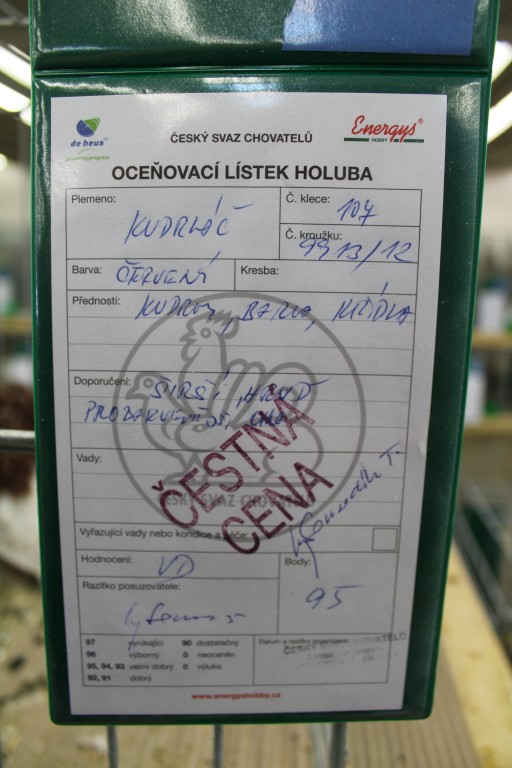 de heus
ČESKÝ SVAZ CHOVATELŮ
Energys
HOBBY
OCEŇOVACÍ LÍSTEK HOLUBA
Plemeno: KUDRLÁČ
Č. klece: 107
Č. kroužku: 9913/12
Barva: ČERVENÝ
Kresba:
Přednosti: KUDRNY, BARVA, KŘÍDLA
Doporučení: ŠIRŠÍ, HRUĎ
PROBARVENĚJŠÍ
ČESTNÁ
CENA
Vady:
ČESKÝ SVAZ CHOVATELŮ
Vyřazující vady nebo kondice a péče:
Hodnocení: VD
Body: 95
Razítko posuzovatele:
97 vynikající 90 dostatečný
96 výborný 0 neoceněn
95, 94, 93 velmi dobrý 0 výluka
92, 91 dobrý
Datum a razítko organizace:
ČESKÝ SVAZ CHOVATELŮ
www.energyshobby.cz